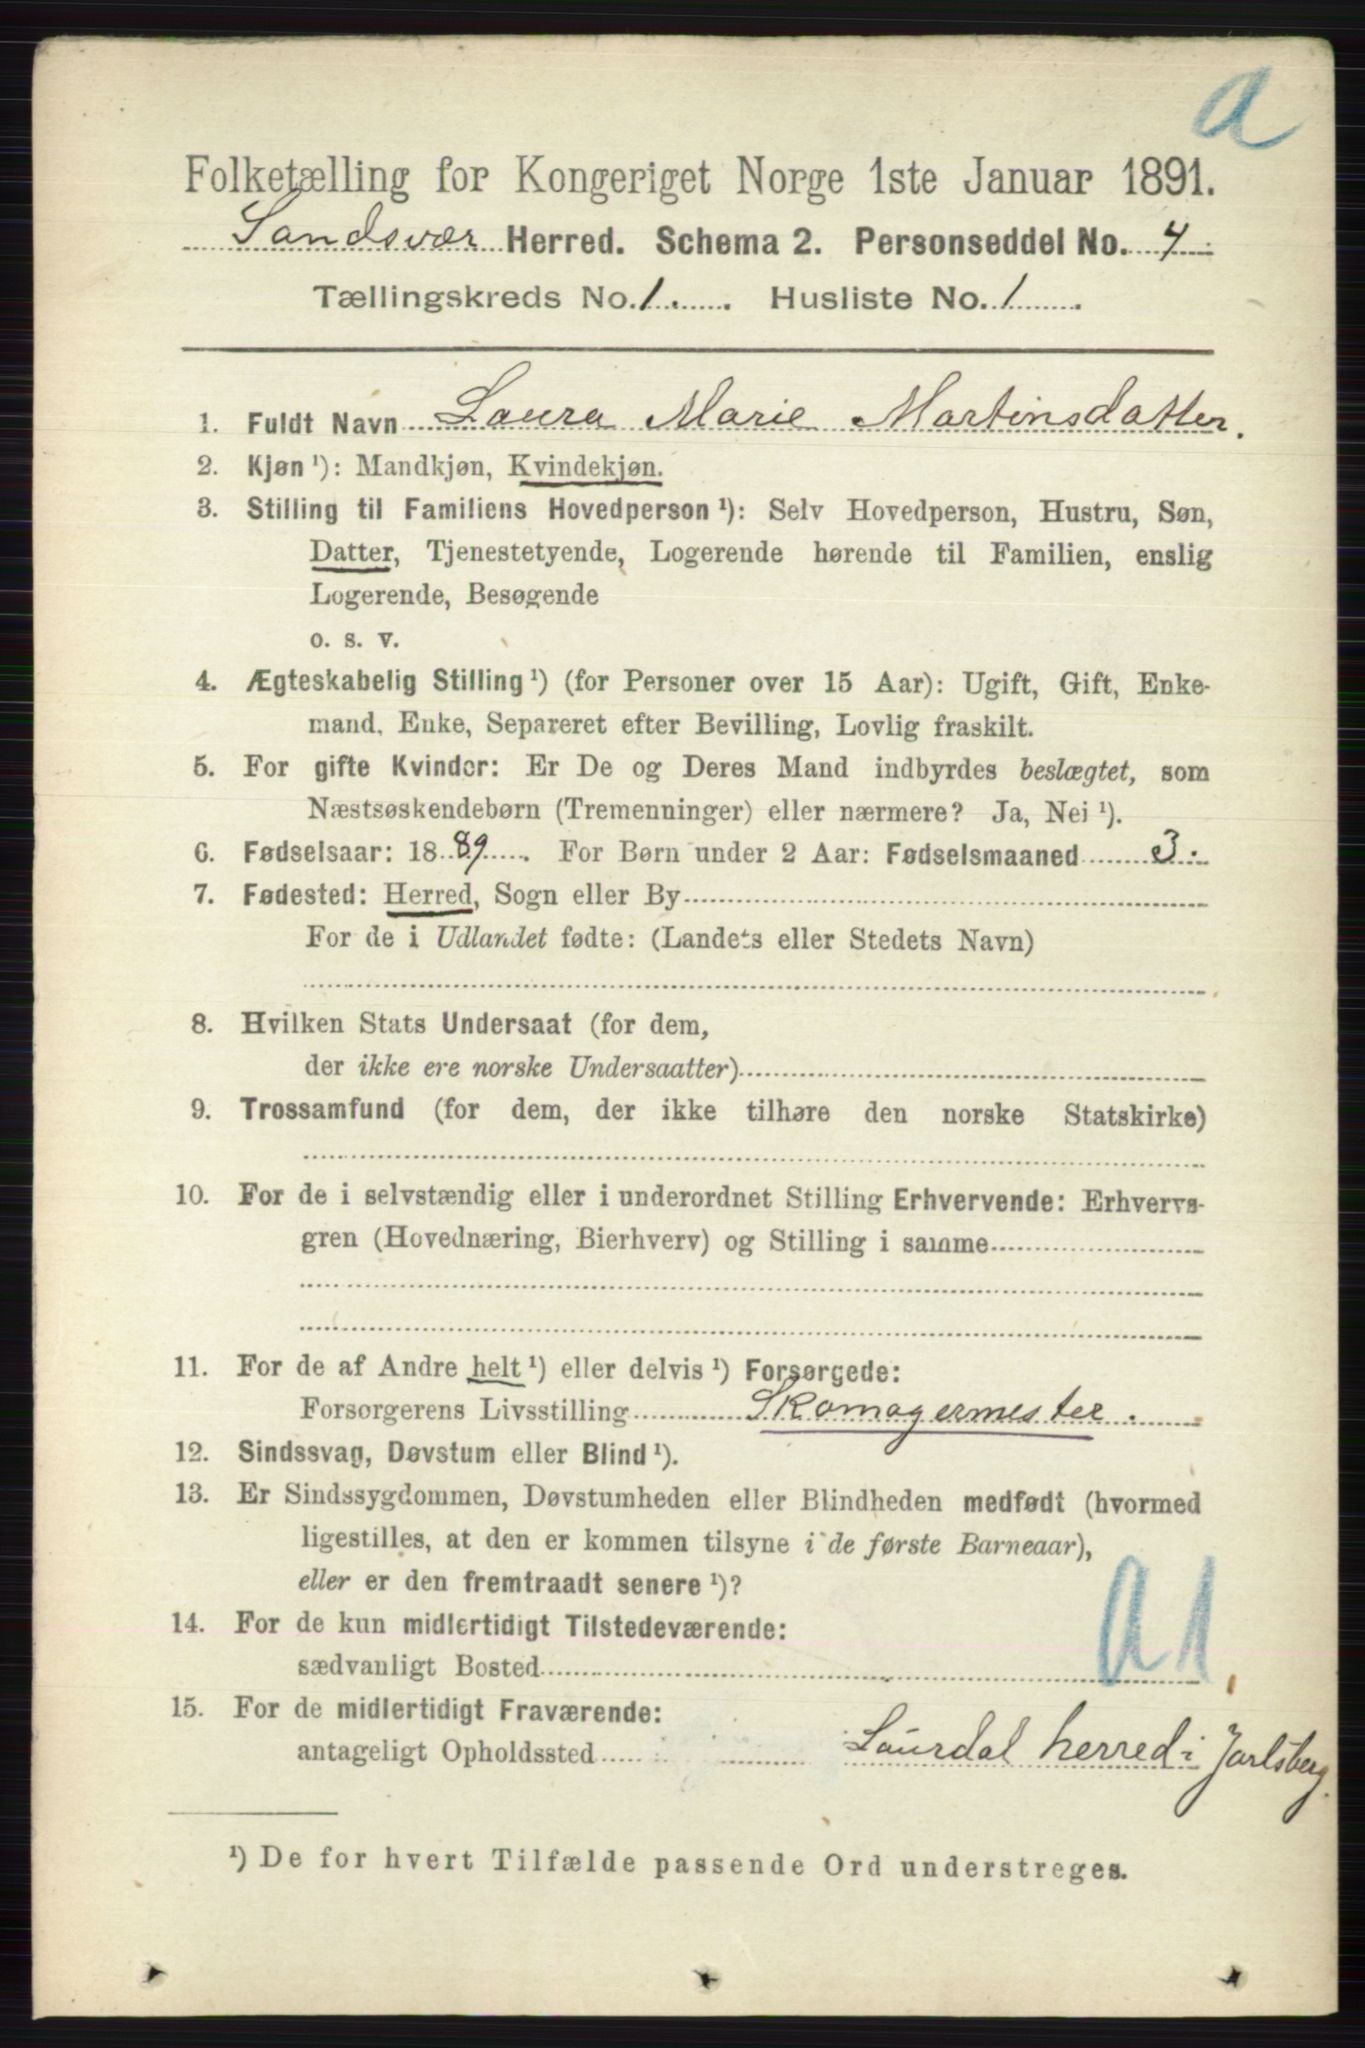 a
Folketælling for Kongeriget Norge 1ste Januar 1891.
Sandsvær Herred. Schema 2. Personseddel No. 4
Tællingskreds No. 1. Husliste No. 1
1. Fuldt Navn Laura Marie Martinsdatter.
2. Kjøn ¹): Mandkjøn, Kvindekjøn.
3. Stilling til Familiens Hovedperson ¹): Selv Hovedperson, Hustru, Søn,
Datter, Tjenestetyende, Logerende hørende til Familien, enslig
Logerende, Besøgende
o. s. v.
4. Ægteskabelig Stilling ¹) (for Personer over 15 Aar): Ugift, Gift, Enke-
mand, Enke, Separeret efter Bevilling, Lovlig fraskilt.
5. For gifte Kvinder: Er De og Deres Mand indbyrdes beslægtet, som
Næstsøskendebørn (Tremenninger) eller nærmere? Ja, Nei ¹).
6. Fødselsaar: 1889. For Børn under 2 Aar: Fødselsmaaned 3.
7. Fødested: Herred, Sogn eller By
For de i Udlandet fødte: (Landets eller Stedets Navn)
8. Hvilken Stats Undersaat (for dem,
der ikke ere norske Undersaatter)
9. Trossamfund (for dem, der ikke tilhøre den norske Statskirke)
10. For de i selvstændig eller i underordnet Stilling Erhvervende: Erhvervs-
gren (Hovednæring, Bierhverv) og Stilling i samme
11. For de af Andre helt ¹) eller delvis ¹) Forsørgede:
Forsørgerens Livsstilling Skomagermester.
12. Sindssvag, Døvstum eller Blind ¹).
13. Er Sindssygdommen, Døvstumheden eller Blindheden medfødt (hvormed
ligestilles, at den er kommen tilsyne i de første Barneaar),
eller er den fremtraadt senere ¹)?
14. For de kun midlertidigt Tilstedeværende:
sædvanligt Bosted
a1
15. For de midlertidigt Fraværende:
antageligt Opholdssted Laurdal herred i Jarlsberg.
¹) De for hvert Tilfælde passende Ord understreges.